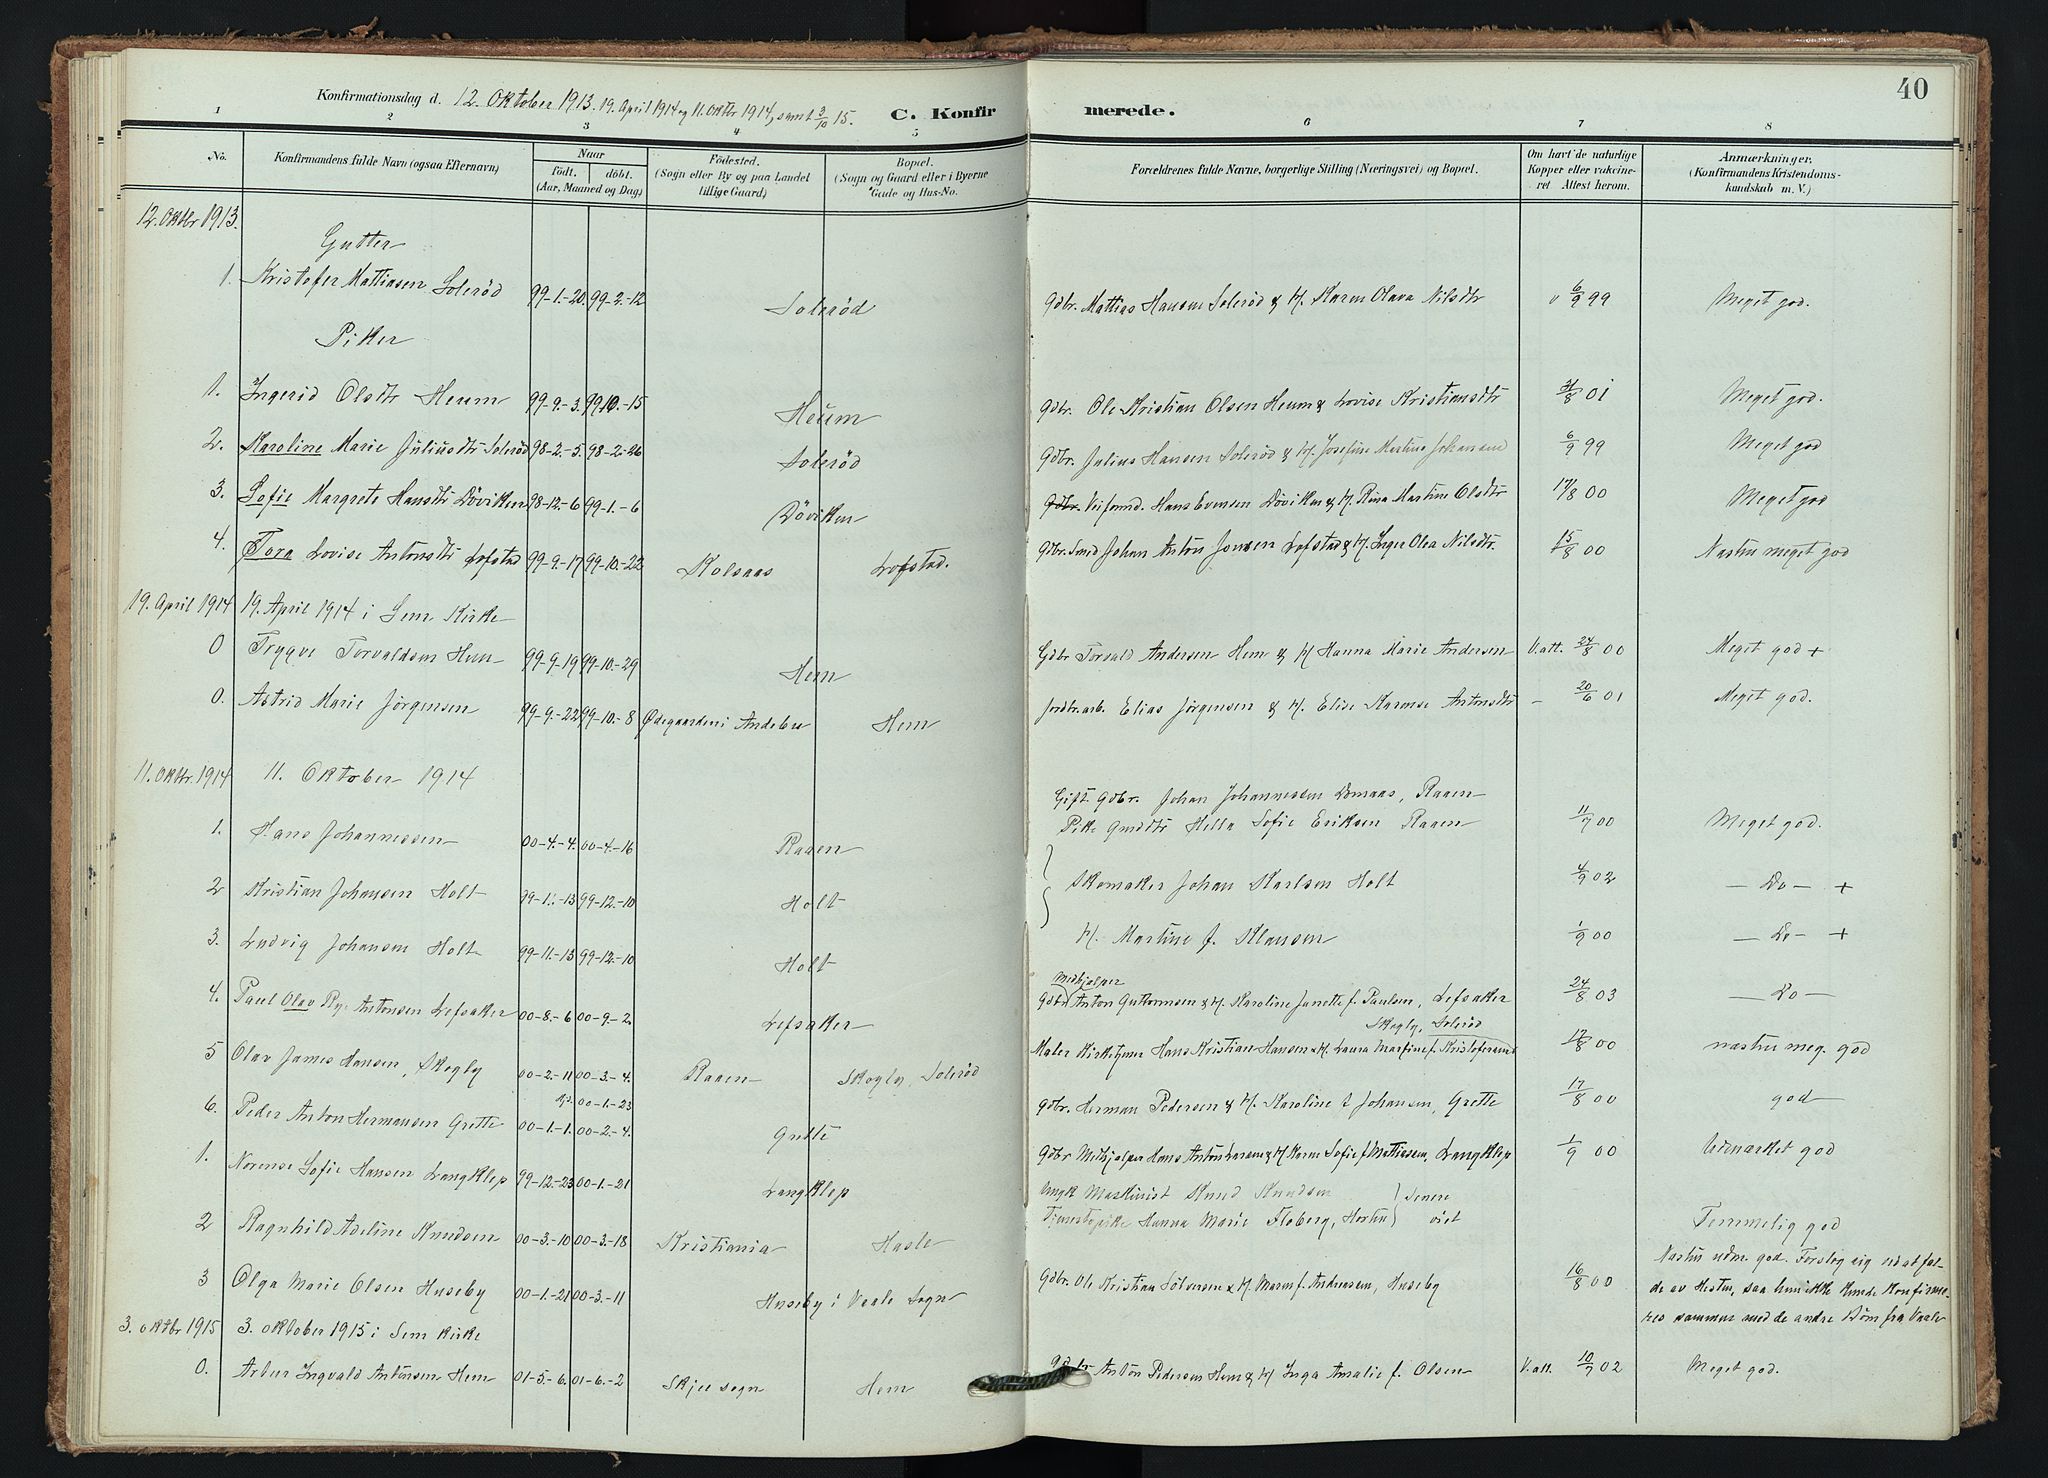 40
Konfirmationsdag d. 12. Oktober 1913. 19. April 1914 og 11. Oktbr 1914, samt 3/10 15. C. Konfirmerede.
1 2 3 4 5 6 7 8
No. Konfirmandens fulde Navn (ogsaa Efternavn) Naar født. døbt. (Aar, Maaned og Dag) Fødested. (Sogn eller By og paa Landet tillige Gaard) Bopæl. (Sogn og Gaard eller i Byerne Gade og Hus-No. Forældrenes fulde Navne, borgerlige Stilling (Næringsvei) og Bopæl. Om havt de naturlige Kopper eller vakcineret. Attest herom. Anmærkninger. (Konfirmandens Kristendomskundskab m. V.)
12. Oktbr 1913.
Gutter
1. Kristofer Mattiasen Solerød 99-1-20. 99-2-12 Solerød Gdbr. Mattias Hansen Solerød & H. Karen Olava Nilsdtr v 6/9 99 Meget god.
Piker
1. Ingerid Olsdtr Heum 99-9-3. 99-10-15 Heum Gdbr. Ole Kristian Olsen Heum & Lovise Kristiansdtr 31/8 01 Meget god.
2. Karoline Marie Juliusdtr Solerød 98-2-5. 98-2-26 Solerød Gdbr. Julius Hansen Solerød & H. Josefine Martine Johansen 6/9 99 Meget god
3. Sofie Margrete Hansdtr Døviken 98-12-6 99-1-6 Døviken Gdbr. Veiformd. Hans Evensen Døviken & H. Rina Martine Olsdtr 17/8 00 Meget god
4. Tora Lovise Antonsdtr Lofstad 99-9-17 99-10-22 Kolsaas Lofstad. Gdbr. Smed Johan Anton Jensen Lofstad & H. Inger Olea Nilsdtr. 15/8 00 Næsten meget god
19. April 1914 19. April 1914 i Sem Kirke
0 Trygve Torvaldsen Hem 99-9-19 99-10-29 Hem Gdbr Torvald Andersen Hem & H Hanna Marie Andersen V. att. 24/8 00 Meget god +
0. Astrid Marie Jørgensen 99-9-22 99-10-8 Ødegaarden i Andebu Hem Jordbr.arb. Elias Jørgensen & H. Elise Karense Antonsdtr - 20/6 01 Meget god.
11. Oktbr. 1914 11. Oktober 1914
Gift Gdbr. Johan Johannessen Domaas, Raaen
1. Hans Johannessen 00-4-4. 00-4-16 Raaen Pike Helle Sofie Eriksen Raaen 11/7 00 Meget god.
2 Kristian Johansen Holt 99-11-13 99-12-10 Holt Skomaker Johan Karlsen Holt 4/9 02 - Do - +
3. Ludvig Johansen Holt 99-11-13 99-12-10 Holt H. Martine f. Klausen 1/9 00 - Do - +
Medhjelper
4. Paul Olav Antonsen Lefsaker 00-8-6 00-9-2. Lefsaker Gdbr Anton Guttormsen & H. Karoline Janette f. Paulsen, Lefsaker 24/8 03 - Do -
Skogly, Solerød
5 Olav James Hansen, Skogly 00-2-11 00-3-4. Raaen Skogly, Solerød Maler Kirketjener Hans Kristian Hansen & H. Laura Martine f. Kristofersen 17/8 00 næsten meg. god
00-1-23
6. Peder Anton Hermansen Grette 00-1-1. 00-2-4. Grette Gdbr. Herman Pedersen & H. Karoline f Johansen, Grette 17/8 00 god
1. Norense Sofie Hansen Langklep 99-12-23 00-1-21 Langklep Gdbr Methjelper Hans Anton Larsen & H Karen Sofie f Mattiassen, Langklep 1/9 00 Udmærket god
Ungk Maskinist Knud Knudsen } Senere
2 Ragnhild Adeline Knudsen 00-3-10 00-3-18 Kristiania Hasle Tjenestepike Hanna Marie Floberg, Horten } viet Temmelig god
3 Olga Marie Olsen Huseby 00-1-21 00-3-11 Huseby i Vaale Sogn Gdbr. Ole Kristian Sørensen & H. Maren f. Andreasen, Huseby 16/8 00 Næsten udm. god. Forslog sig ved at falde av Hesten, saa hun ikke kunde Konfirmeres sammen med de andre Børn fra Vaale
3. oktbr 1915 3. oktober 1915 i Sem Kirke
0. Artur Ingvald Antonsen Hem 01-5-6. 01-6-2 Skjee sogn Hem Gdbr Anton Pedersen Hem & H Inga Amalie f. Olsen V. att. 10/7 02 Meget god.